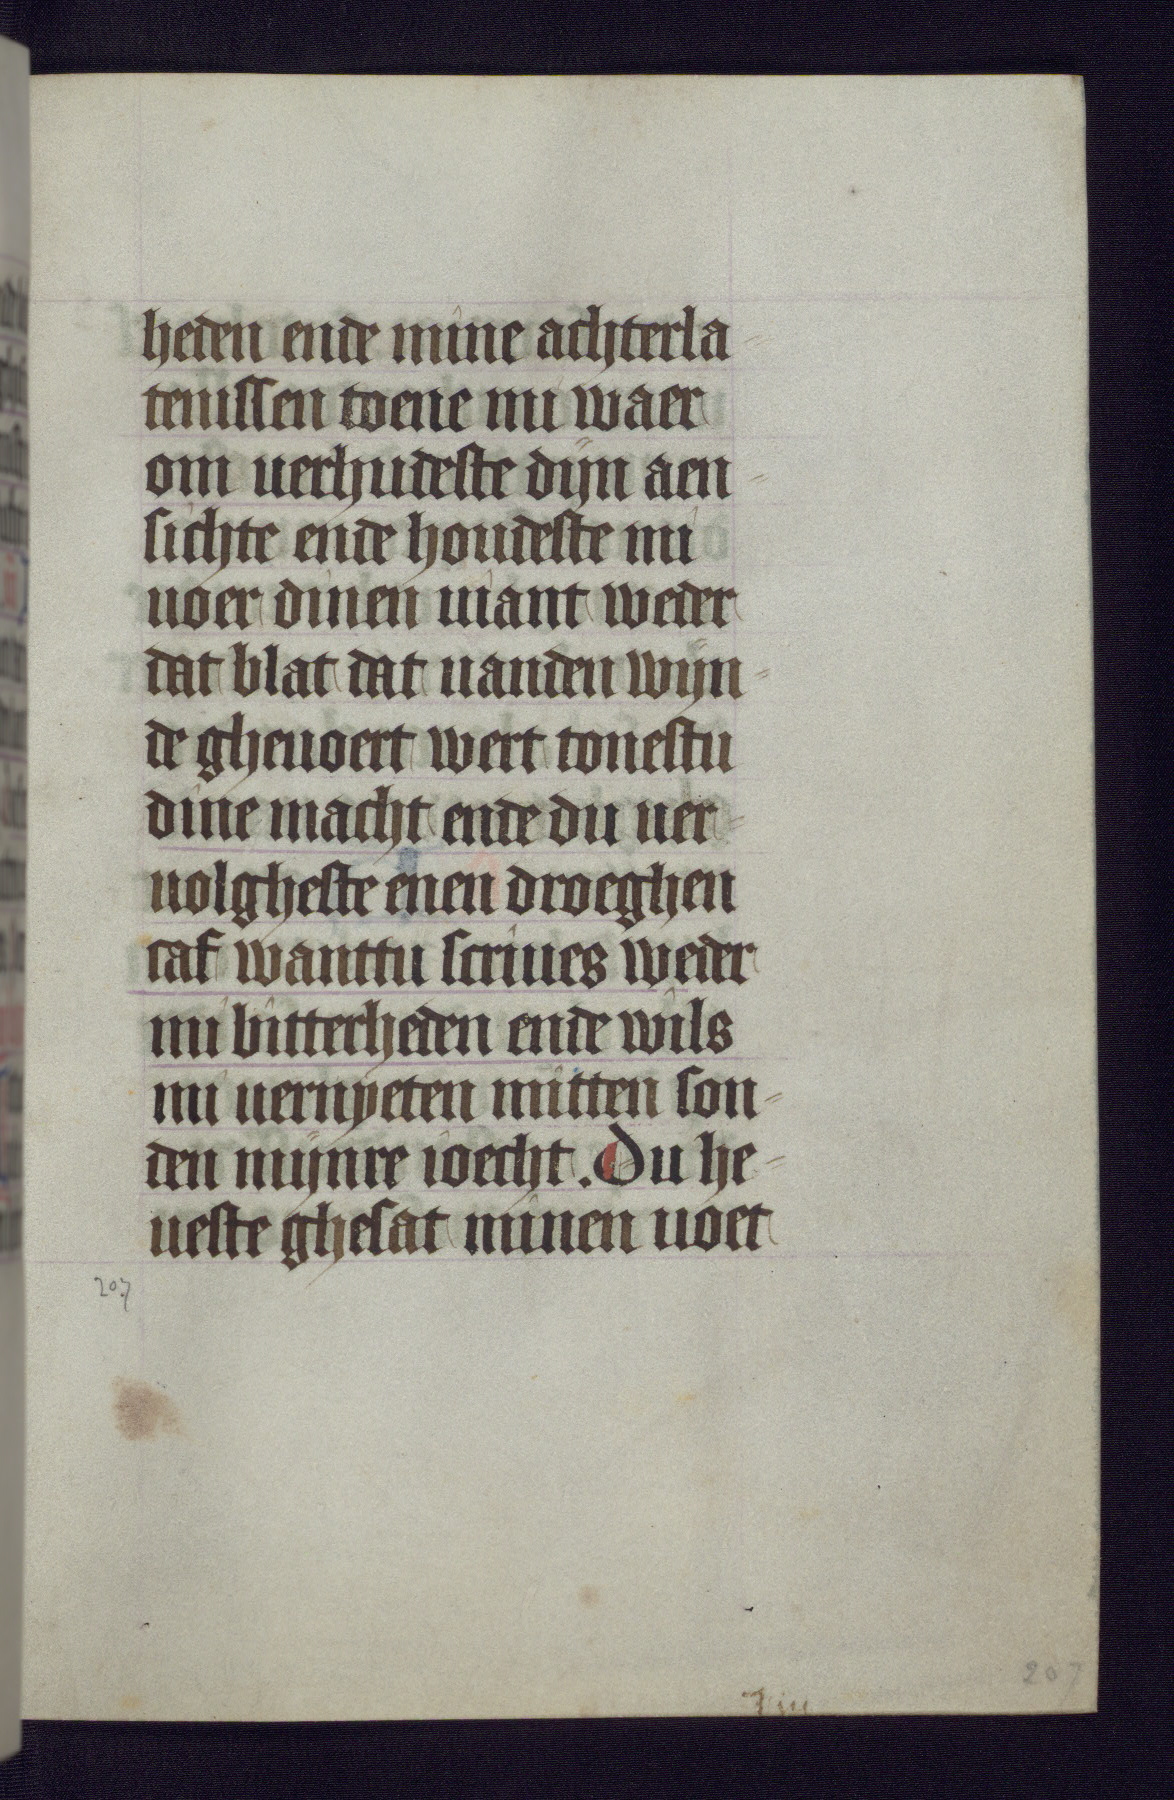 heden ende mine achterla-
tenissen toene mi waer
om verhudeste dijn aen-
sichte ende houdeste mi
voer dinen viant weder
dat blat dat vanden wijn-
de ghevoert wert tonestu
dine macht ende du ver-
volgheste enen droeghen
caf wanttu scrives weder
mi bitterheden ende wils
mi vernyeten mitten son-
den mijnre ioecht. Du he-
veste ghesat minen voet
207
207